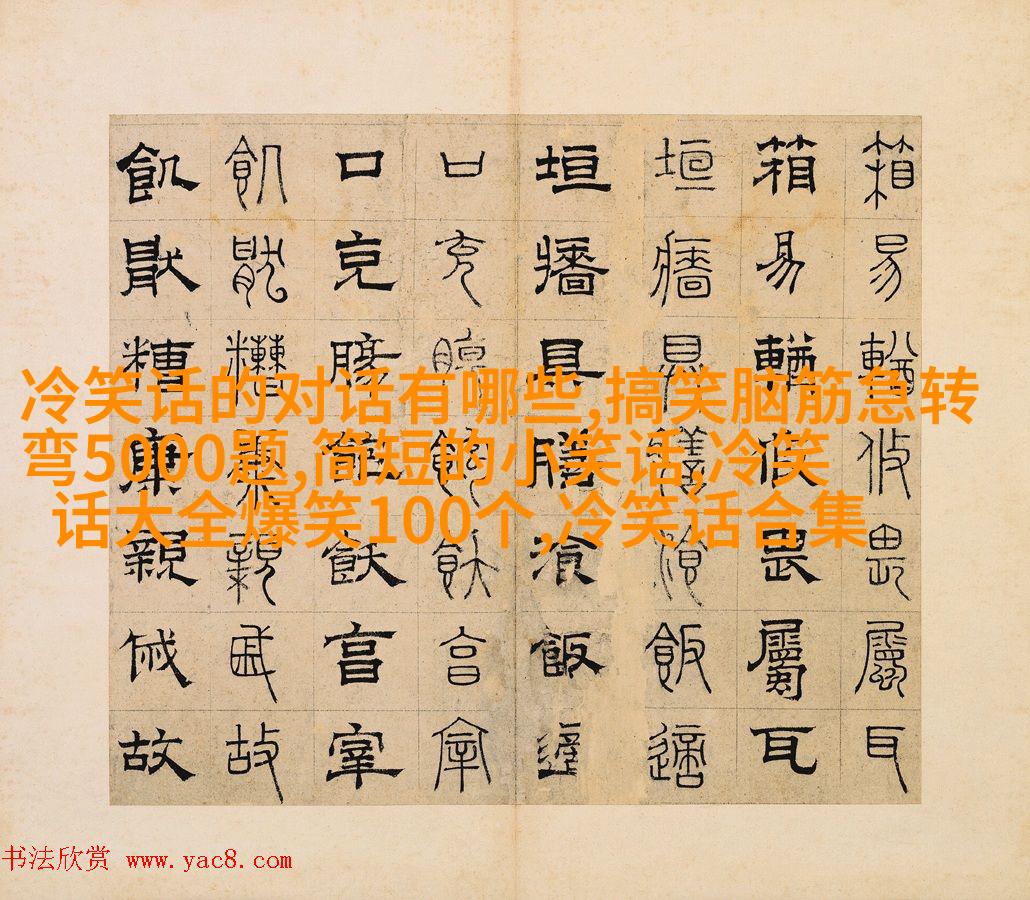 冷笑话的对话有哪些,搞笑脑筋急转
弯5000题,简短的小笑话,冷笑
话大全爆笑100个,冷笑话合集
箱易輶攸畏屬耳
箱易輶攸畏屬耳
垣牆具膳飡飯適
垣牆具膳飡飯適
口充腸飽飫亯宰
口充腸飽飫亯宰
飢猒糟康親戚故
飢猒糟康親戚故
书法欣赏 www.yac8.com